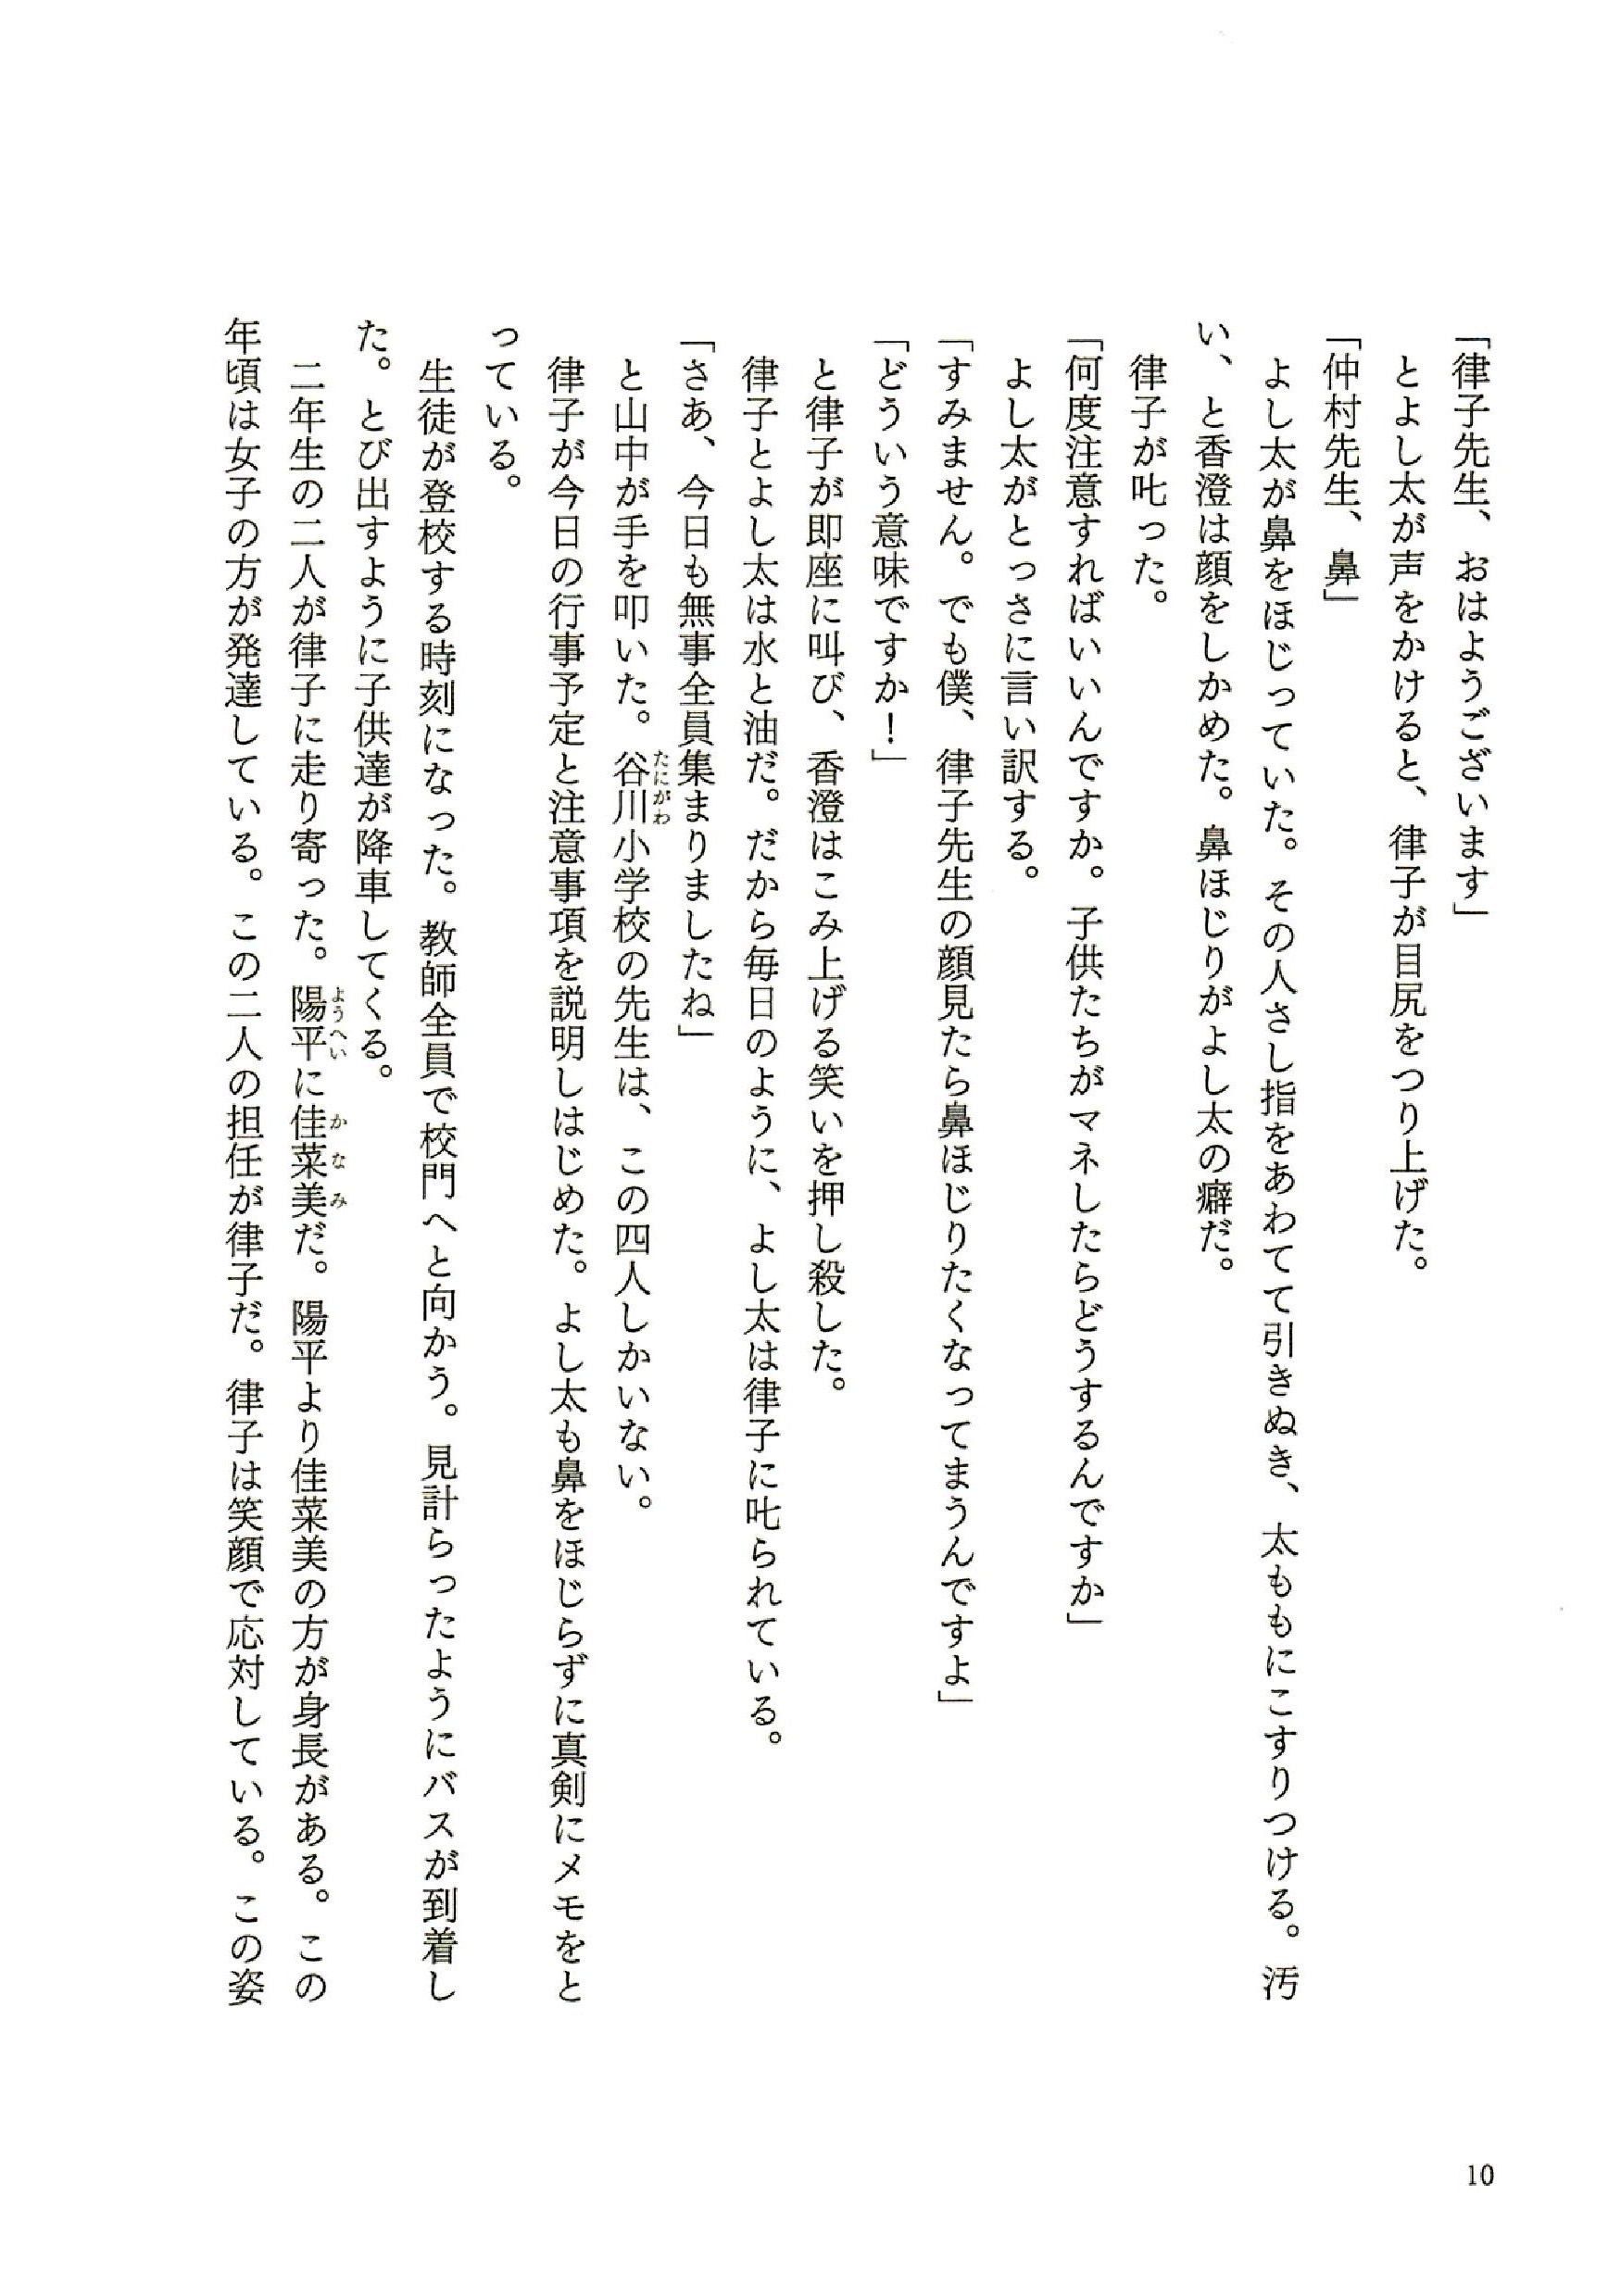 「律子先生、おはようございます」
とよし太が声をかけると、律子が目尻をつり上げた。
「仲村先生、鼻」
よし太が鼻をほじっていた。その人さし指をあわてて引きぬき、太ももにこすりつける。汚
い、と香澄は顔をしかめた。鼻ほじりがよし太の癖だ。
律子が叱った。
「何度注意すればいいんですか。子供たちがマネしたらどうするんですか」
よし太がとっさに言い訳する。
「すみません。でも僕、律子先生の顔見たら鼻ほじりたくなってまうんですよ」
「どういう意味ですか！」
と律子が即座に叫び、香澄はこみ上げる笑いを押し殺した。
律子とよし太は水と油だ。だから毎日のように、よし太は律子に叱られている。
「さあ、今日も無事全員集まりましたね」
と山中が手を叩いた。谷川小学校の先生は、この四人しかいない。
たにがわ
律子が今日の行事予定と注意事項を説明しはじめた。よし太も鼻をほじらずに真剣にメモをと
っている。
生徒が登校する時刻になった。教師全員で校門へと向かう。見計らったようにバスが到着し
た。とび出すように子供達が降車してくる。
二年生の二人が律子に走り寄った。陽平に佳菜美だ。陽平より佳菜美の方が身長がある。この
ようへい かなみ
年頃は女子の方が発達している。この二人の担任が律子だ。律子は笑顔で応対している。この姿
10